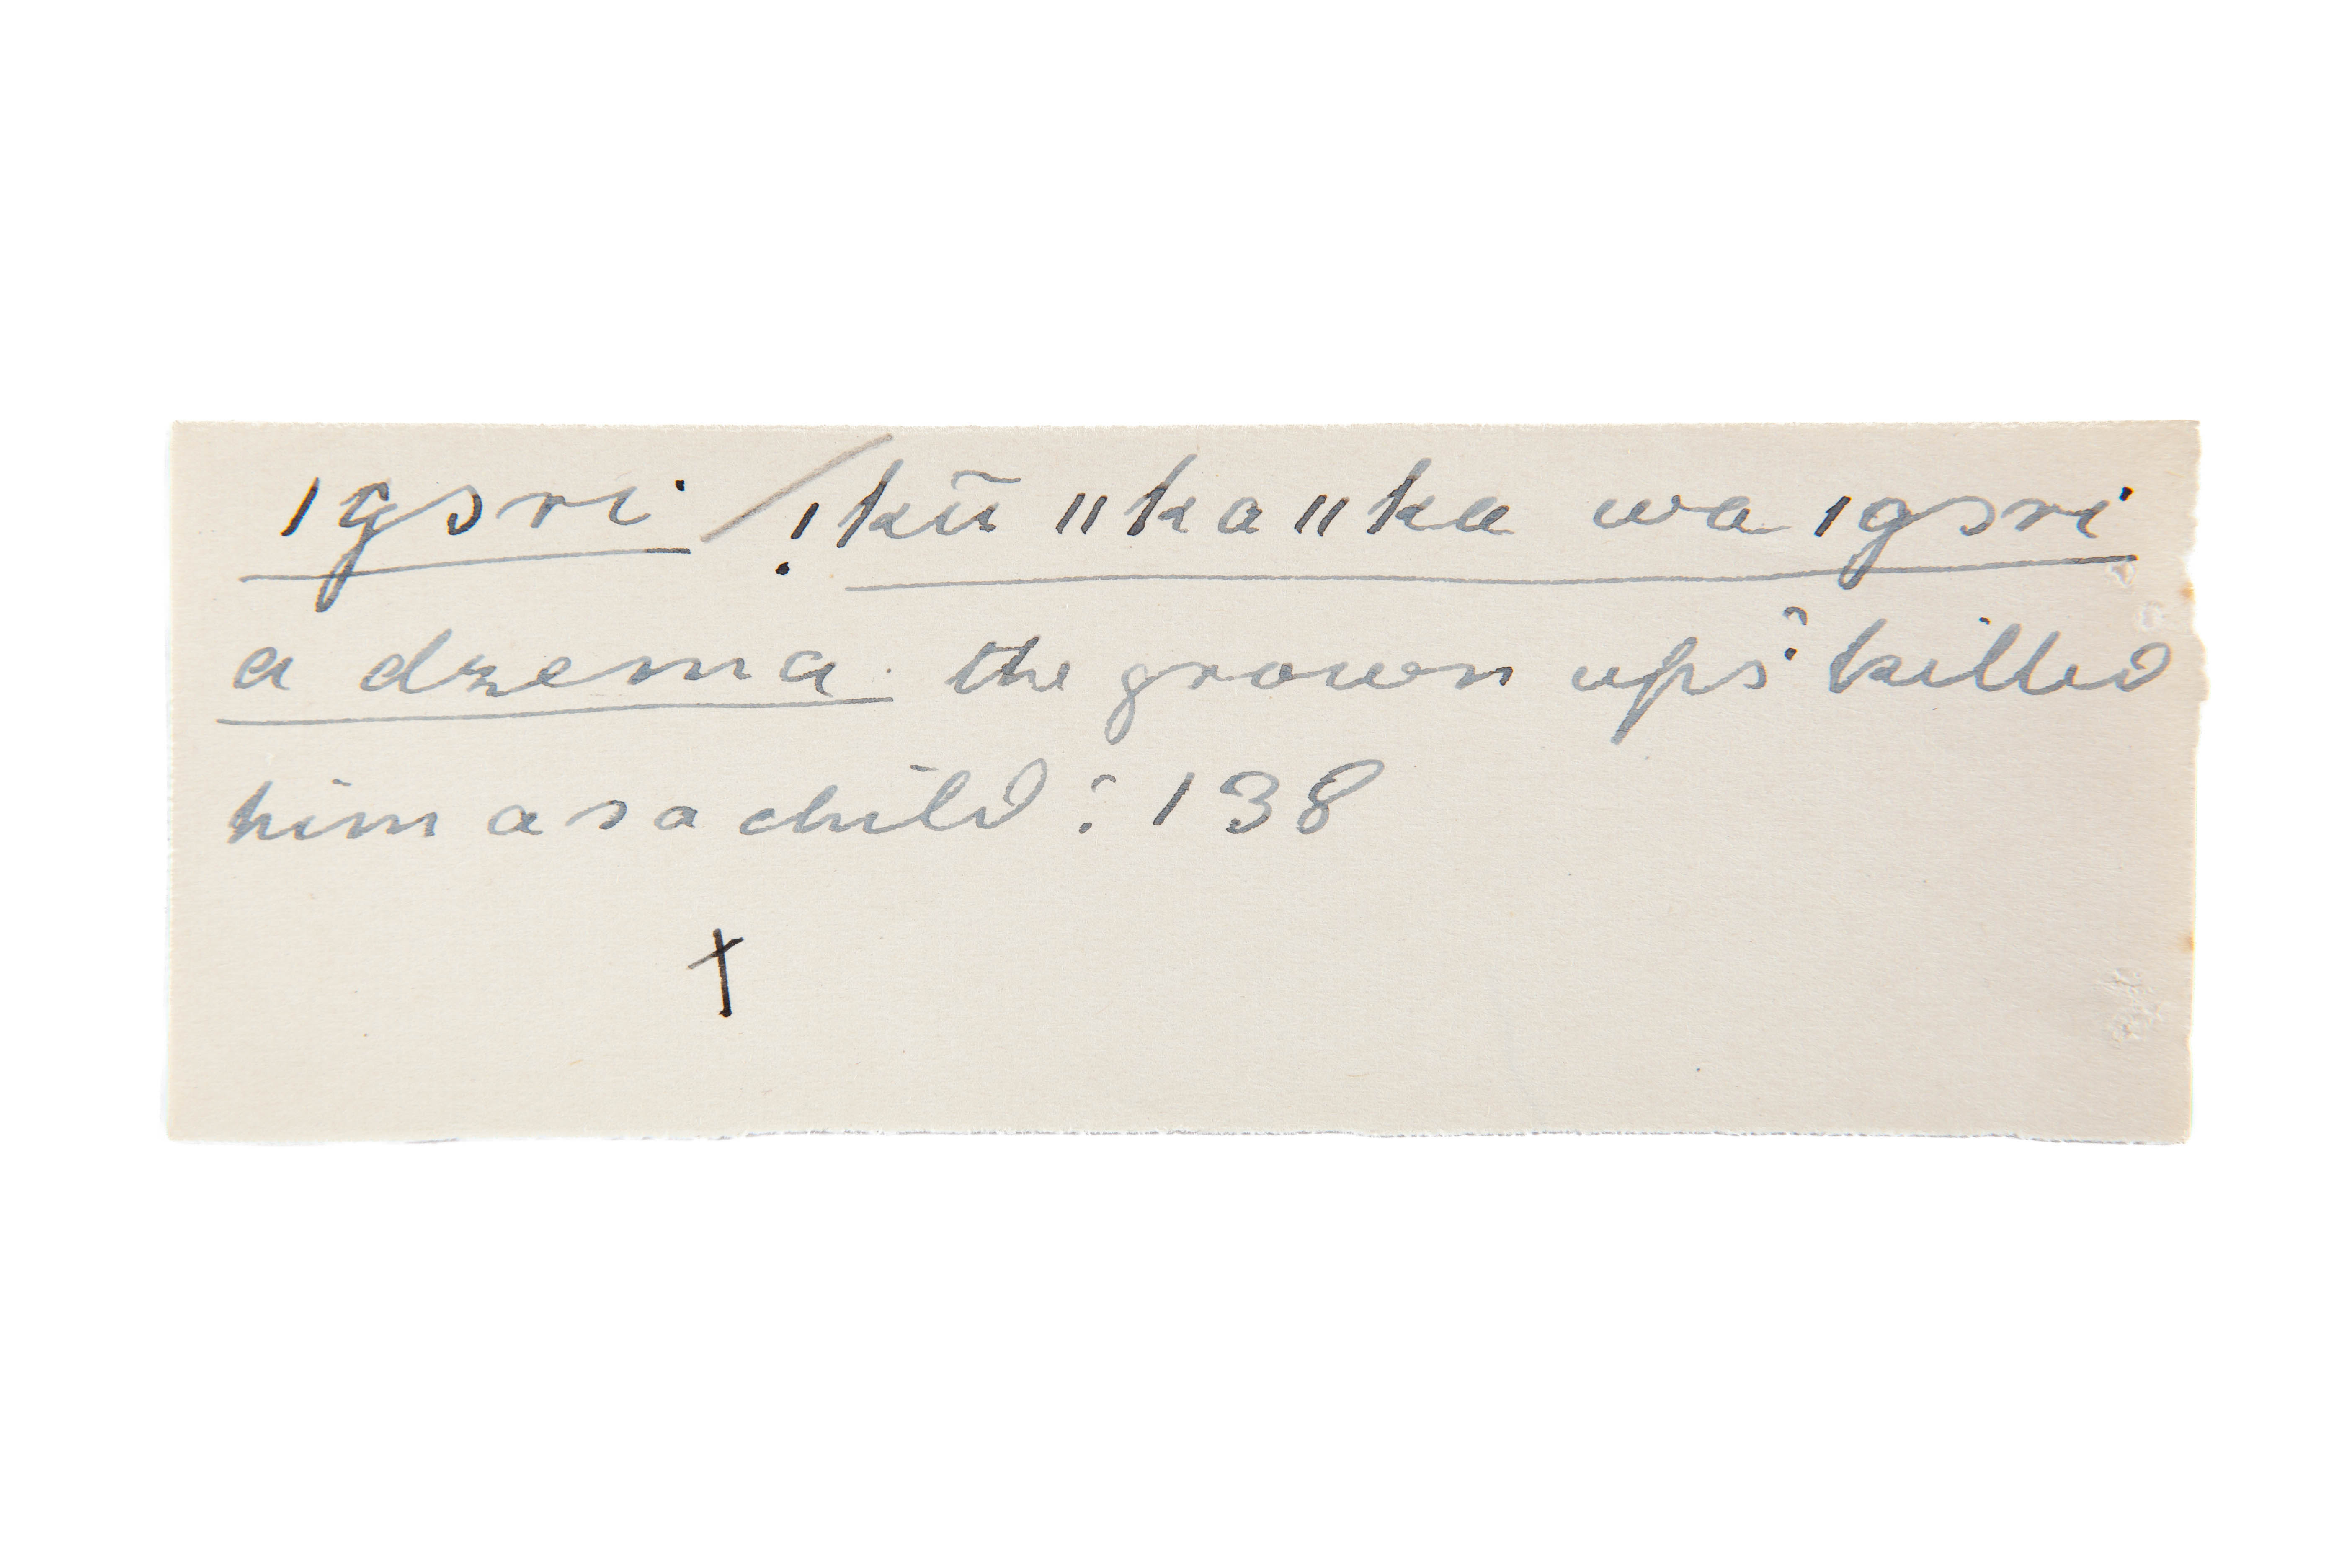 ǀgɔri /ǃkũ ǁkaǁka wa ǀgɔri
a dzema. the grown ups? killed
him as a child? 138
†